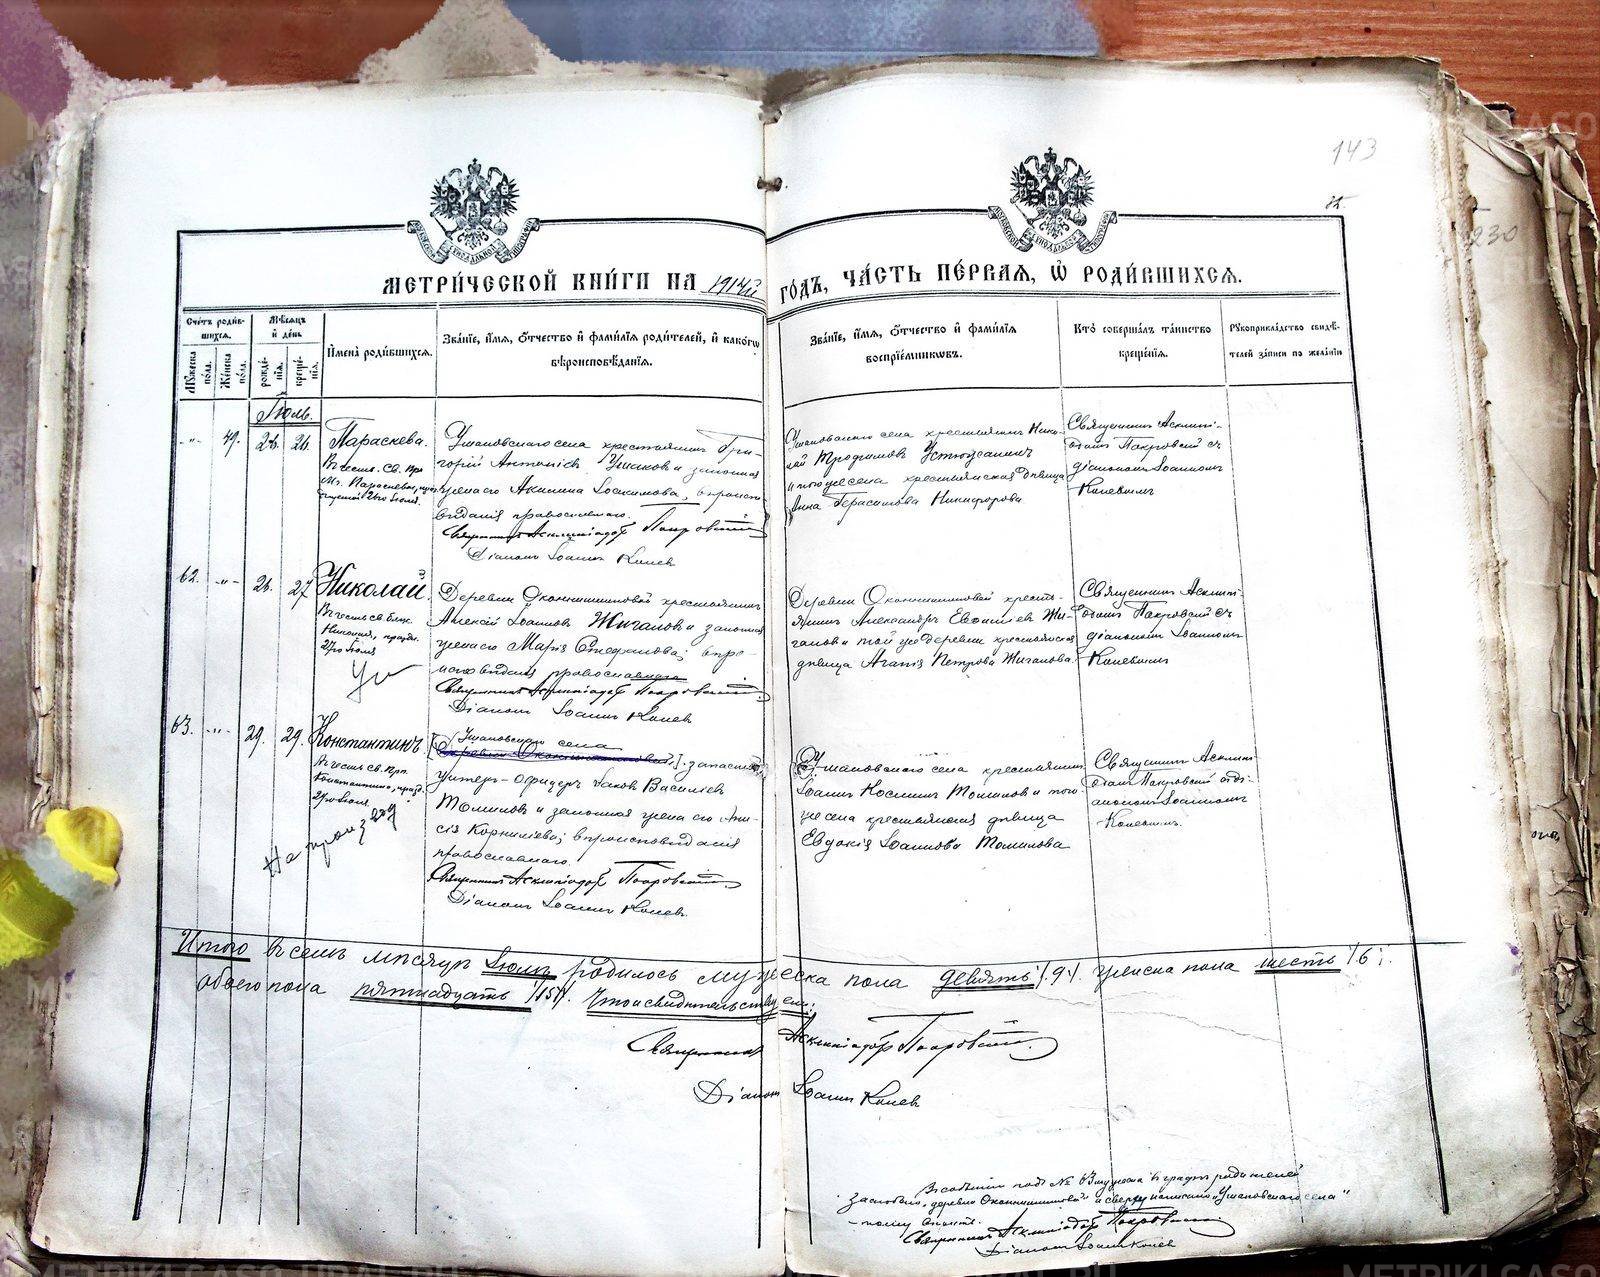 143
МЕТРИ́ЧЕСКОЙ КНИ́ГИ НА 1914й ГО́ДЪ, ЧА́СТЬ ПЕ́РВАЯ, Ѡ РОДИ́ВШИХСЯ.
Счетъ роди́вшихся.
Мꙋжеска пола.
Женска пола.
Мѣсяцъ и день
рожденія.
крещенія.
Имена родившихся.
Званіе, имя, отчество и фамилія родителей, и какогѡ
вѣроисповѣданія.
Званіе, имя, отчество и фамилія
воспріемникѡвъ.
Кто совершалъ таинство
крещенія.
Рукоприкладство свидѣ-
телей записи по желанію
Іюль.
-"- 49. 26. 26.
Параскева.
Въ честь Св. Пр.
Мц. Параскевы,
26го Іюля.
Ушановскаго села крестьянинъ Гри-
горій Антоніевъ Ушаковъ и законная
жена его Акилина Іоакимова, вѣроиспо-
вѣданія православнаго.
Священникъ Асклипіодотъ Покровскій
Діаконъ Іоаннъ Копевъ
Ушановскаго села крестьянинъ Нико-
лай Трофимовъ Устюжанинъ
и того же села крестьянская дѣвица
Анна Герасимова Никифорова
Священникъ Асклипі-
одотъ Покровскій съ
діакономъ Іоанномъ
Копевымъ
62. -"- 26. 27
Николай.
Въ честь св. блаж.
Николая, праздн.
27го Іюля
Деревни Оконишниковой крестьянинъ
Алексій Іоанновъ Жигаловъ и законная
жена его Марія Стефанова; вѣро-
исповѣданія православнаго
Священникъ Асклипіодотъ Покровскій
Діаконъ Іоаннъ Копевъ
Деревни Оконишниковой кресть-
янинъ Александръ Евфиміевъ Жи-
галовъ и той же деревни крестьянская
дѣвица Агапія Петрова Жигалова.
Священникъ Асклипі-
одотъ Покровскій съ
діакономъ Іоанномъ
Копевымъ
63. -"- 29. 29.
Константинъ
Въ честь св. Пр.
Константина, празд.
29го Іюля
Ушановскаго села
[Деревни Оконишниковой] запасный
унтеръ-офицеръ Іаковъ Василіевъ
Томиловъ и законная жена его Ани-
сія Корниліева; вѣроисповѣданія
православнаго.
Священникъ Асклипіодотъ Покровскій
Діаконъ Іоаннъ Копевъ.
Ушановскаго села крестьянинъ
Іоаннъ Косминъ Томиловъ и того
же села крестьянская дѣвица
Евдокія Іоаннова Томилова
Священникъ Асклипі-
одотъ Покровскій съ ді-
акономъ Іоанномъ
Копевымъ.
Итого въ семъ мѣсяцѣ Іюлѣ родилось мужеска пола девять /9/. женска пола шесть /6/;
обоего пола пятнадцать /15/. Что и свидѣтельствуемъ:
Священникъ Асклипіодотъ Покровскій.
Діаконъ Іоаннъ Копевъ
въ графѣ родителей
"деревни Оконишниковой" и сверху написано "Ушановскаго села"
Священникъ Асклипіодотъ Покровскій
Діаконъ Іоаннъ Копевъ